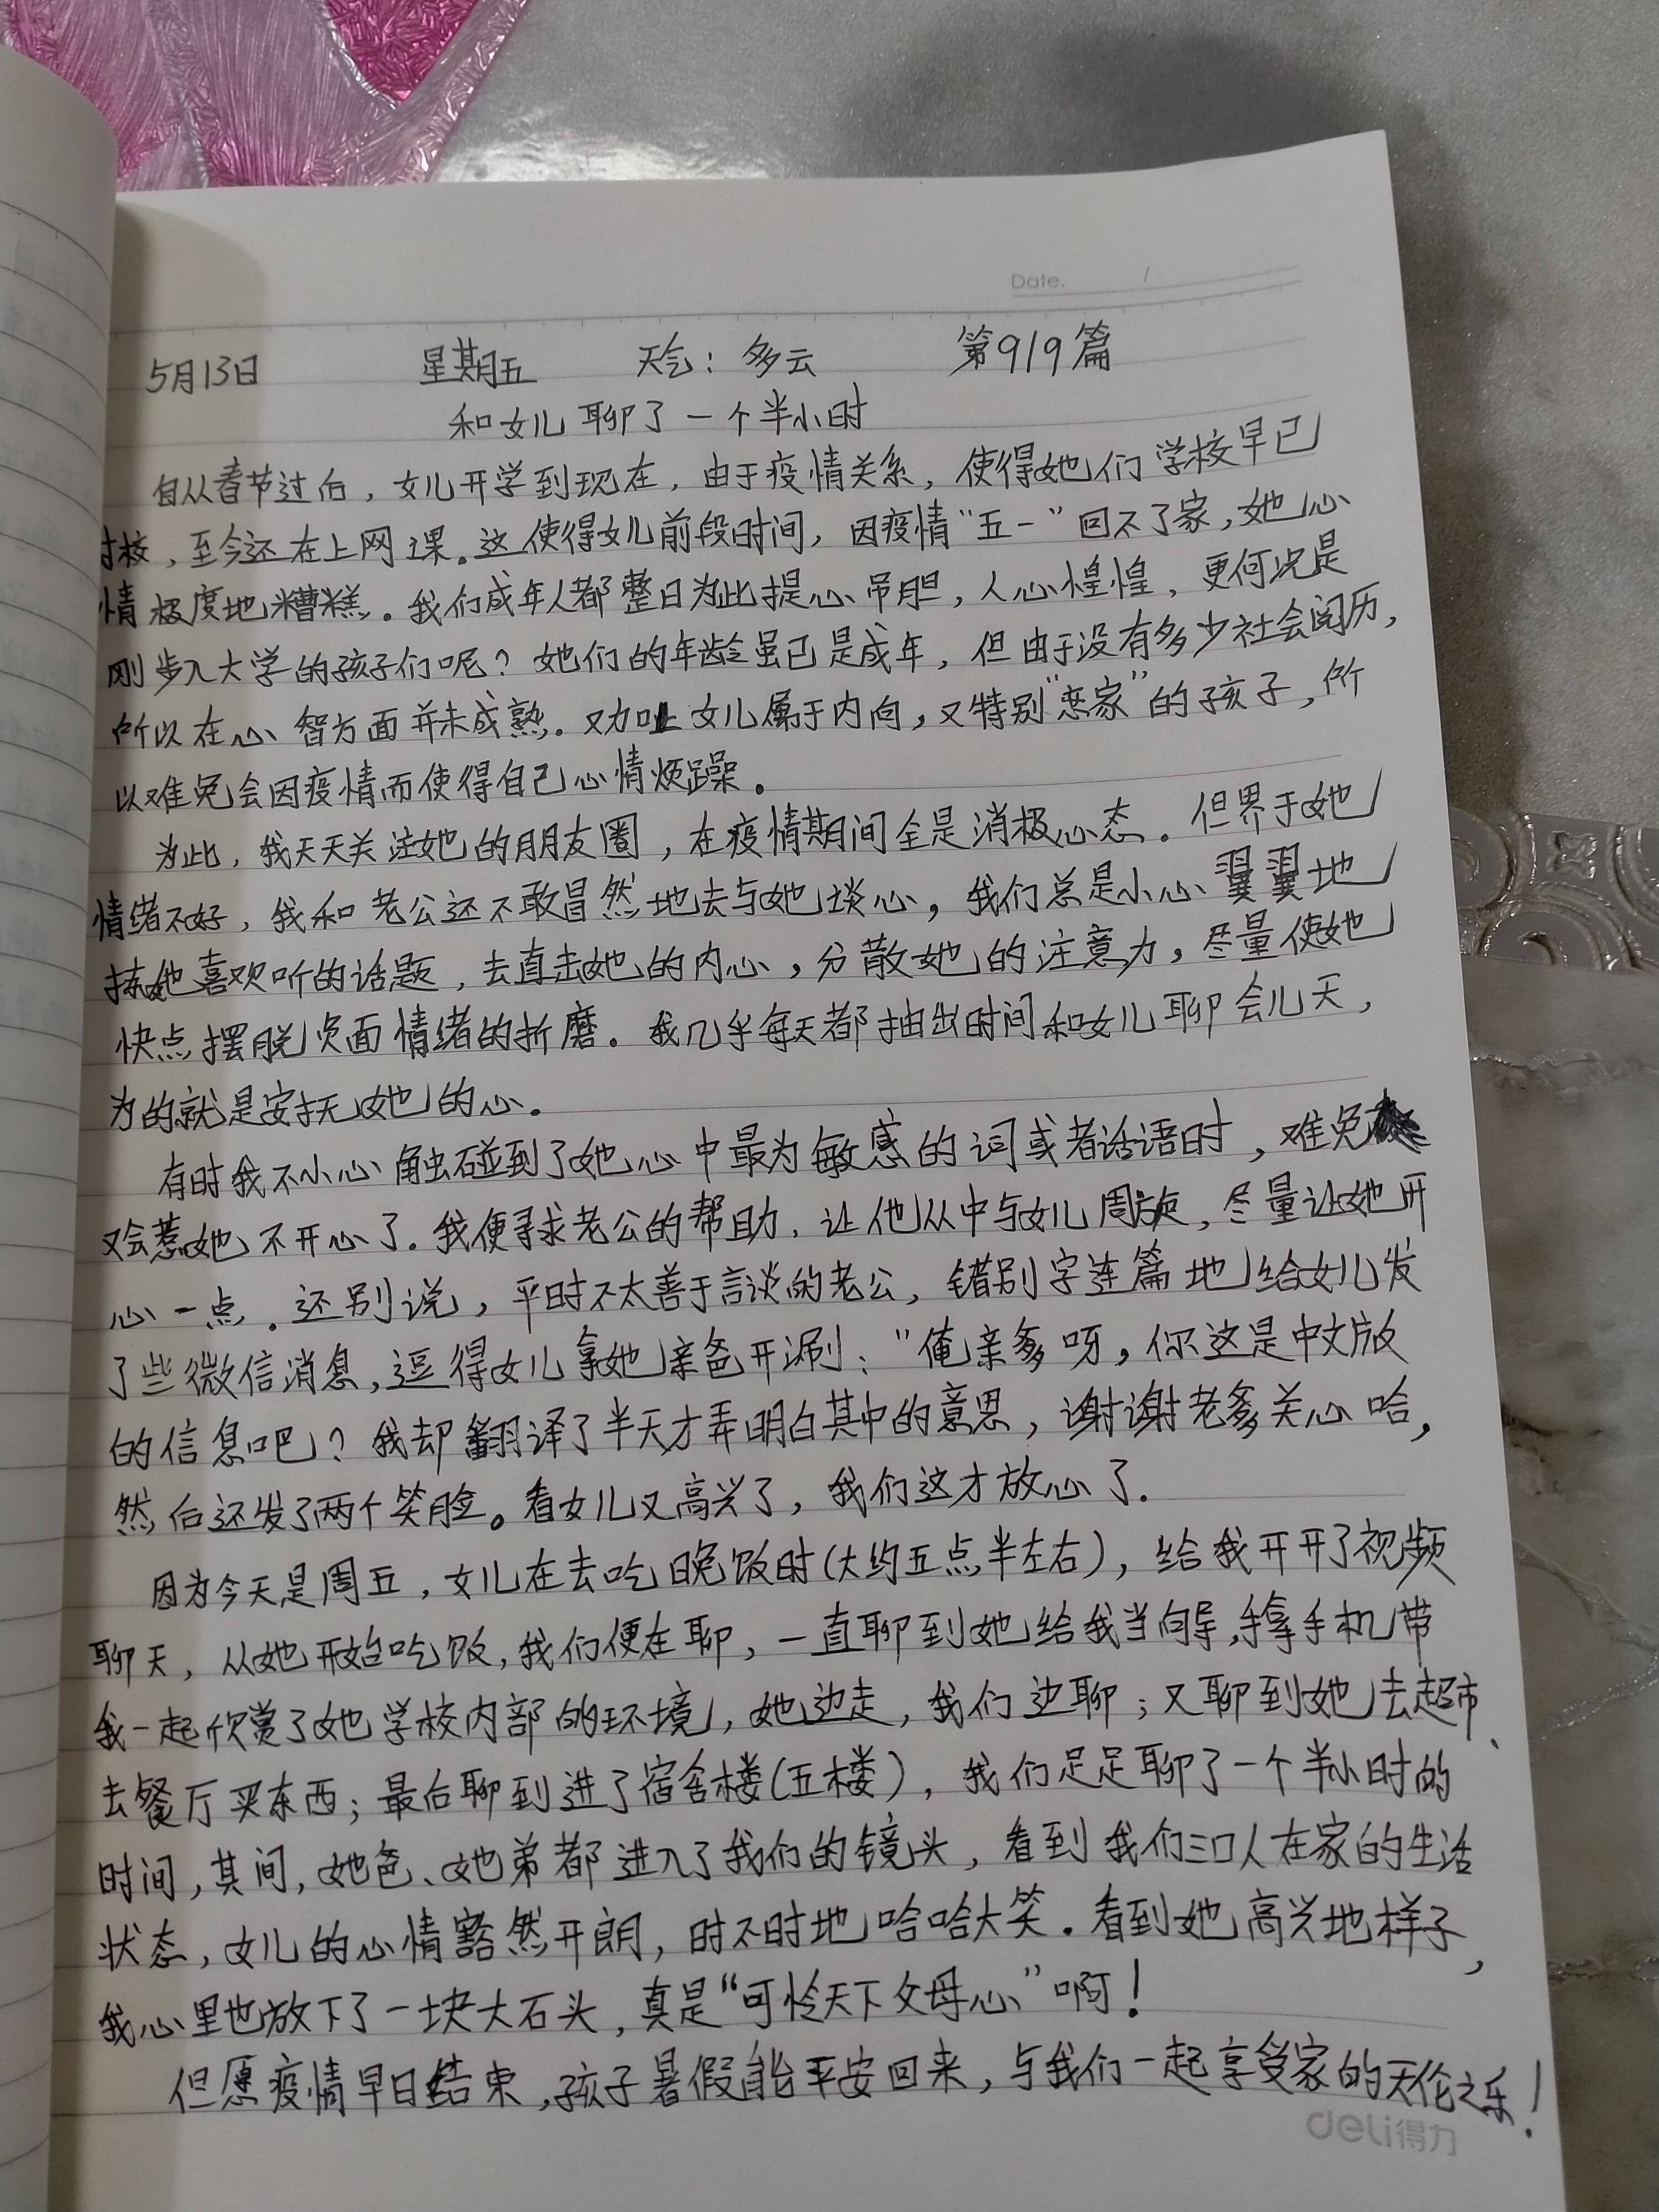 Date. /
5月13日 星期五 天气：多云 第919篇
和女儿聊了一个半小时
自从春节过后，女儿开学到现在，由于疫情关系，使得她们学校早已
封校，至今还在上网课。这使得女儿前段时间，因疫情“五一”回不了家，她心
情极度地糟糕。我们成年人都整日为此提心吊胆，人心惶惶，更何况是
刚步入大学的孩子们呢？她们的年龄虽已是成年，但由于没有多少社会阅历，
所以在心智方面并未成熟。又加上女儿属于内向，又特别“恋家”的孩子，所
以难免会因疫情而使得自己心情烦躁。
为此，我天天关注她的朋友圈，在疫情期间全是消极心态。但界于她
情绪不好，我和老公还不敢冒然地去与她谈心，我们总是小心翼翼地
拣她喜欢听的话题，去直击她的内心，分散她的注意力，尽量使她
快点摆脱负面情绪的折磨。我几乎每天都抽出时间和女儿聊会儿天，
为的就是安抚她的心。
有时我不小心触碰到了她心中最为敏感的词或者话语时，难免
又会惹她不开心了。我便寻求老公的帮助，让他从中与女儿周旋，尽量让她开
心一点。还别说，平时不太善于言谈的老公，错别字连篇地给女儿发
了些微信消息，逗得女儿拿她亲爸开涮：“俺亲爹呀，你这是中文版
的信息吧？我却翻译了半天才弄明白其中的意思，谢谢老爹关心哈，
然后还发了两个笑脸。看女儿又高兴了，我们这才放心了。
因为今天是周五，女儿在去吃晚饭时(大约五点半左右)，给我开开了视频
聊天，从她开始吃饭，我们便在聊，一直聊到她给我当向导，手拿手机带
我一起欣赏了她学校内部的环境，她边走，我们边聊；又聊到她去超市、
去餐厅买东西；最后聊到进了宿舍楼(五楼)，我们足足聊了一个半小时的
时间，其间，她爸、她弟都进入了我们的镜头，看到我们三口人在家的生活
状态，女儿的心情豁然开朗，时不时地哈哈大笑。看到她高兴地样子，
我心里也放下了一块大石头，真是“可怜天下父母心”啊！
但愿疫情早日结束，孩子暑假能平安回来，与我们一起享受家的天伦之乐！
deli得力